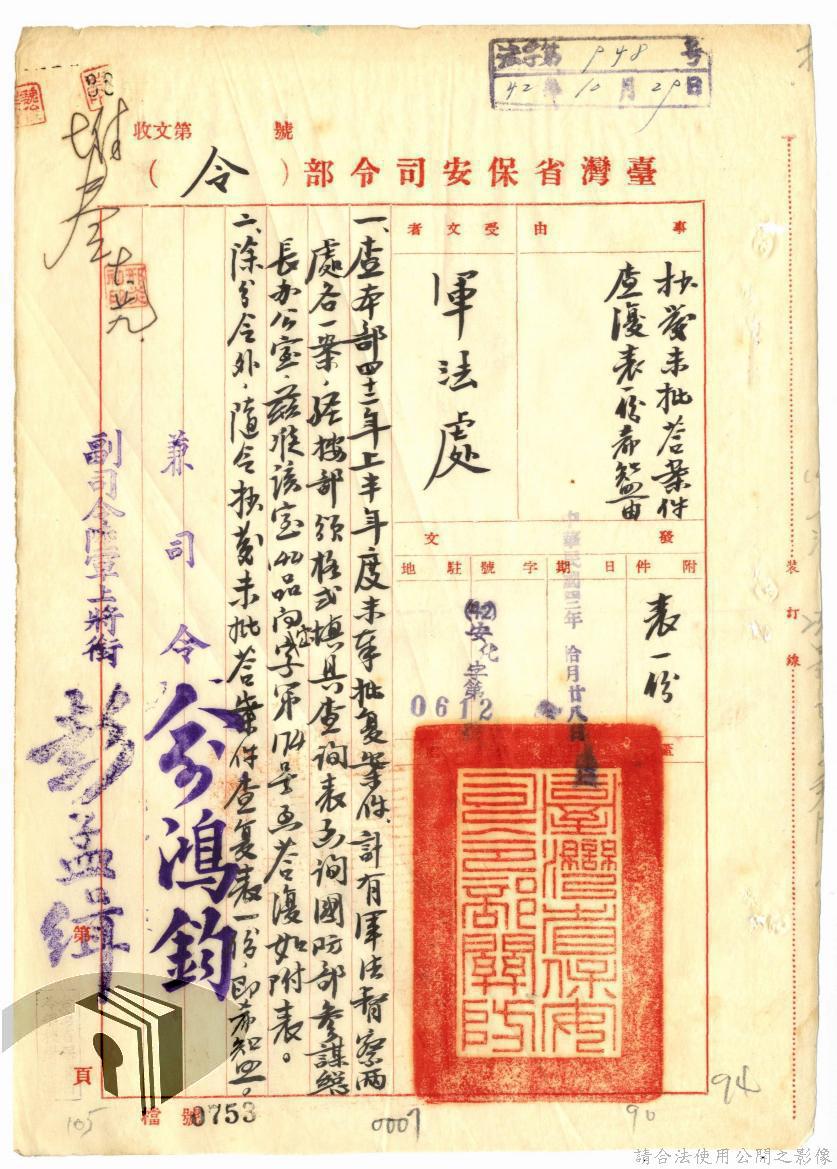 法字第948号
42年10月29日
收文第 號
臺灣省保安司令部（令）
事由
抄發未批答案件
查復表一份希知照由
受文者
軍法處
附件
表一份
發文
日期
中華民國四二年拾月廿八日
字號
(42)安化字第
0612
駐地
臺灣省保安司令部關防
一、查本部四十二年上半年度未奉批复案件、計有軍法督察兩
處各一案，經按部頒格式填具查詢表函詢國防部參謀總
長办公室，茲准該室函答復如附表。
二、除分令外，隨令抄發未批答案件查复表一份，即希知照。
兼司令俞鴻鈞
副司令陸軍上將銜彭孟緝
裝訂線
第
頁
檔號
0753
0007
90
94
105
請合法使用公開之影像